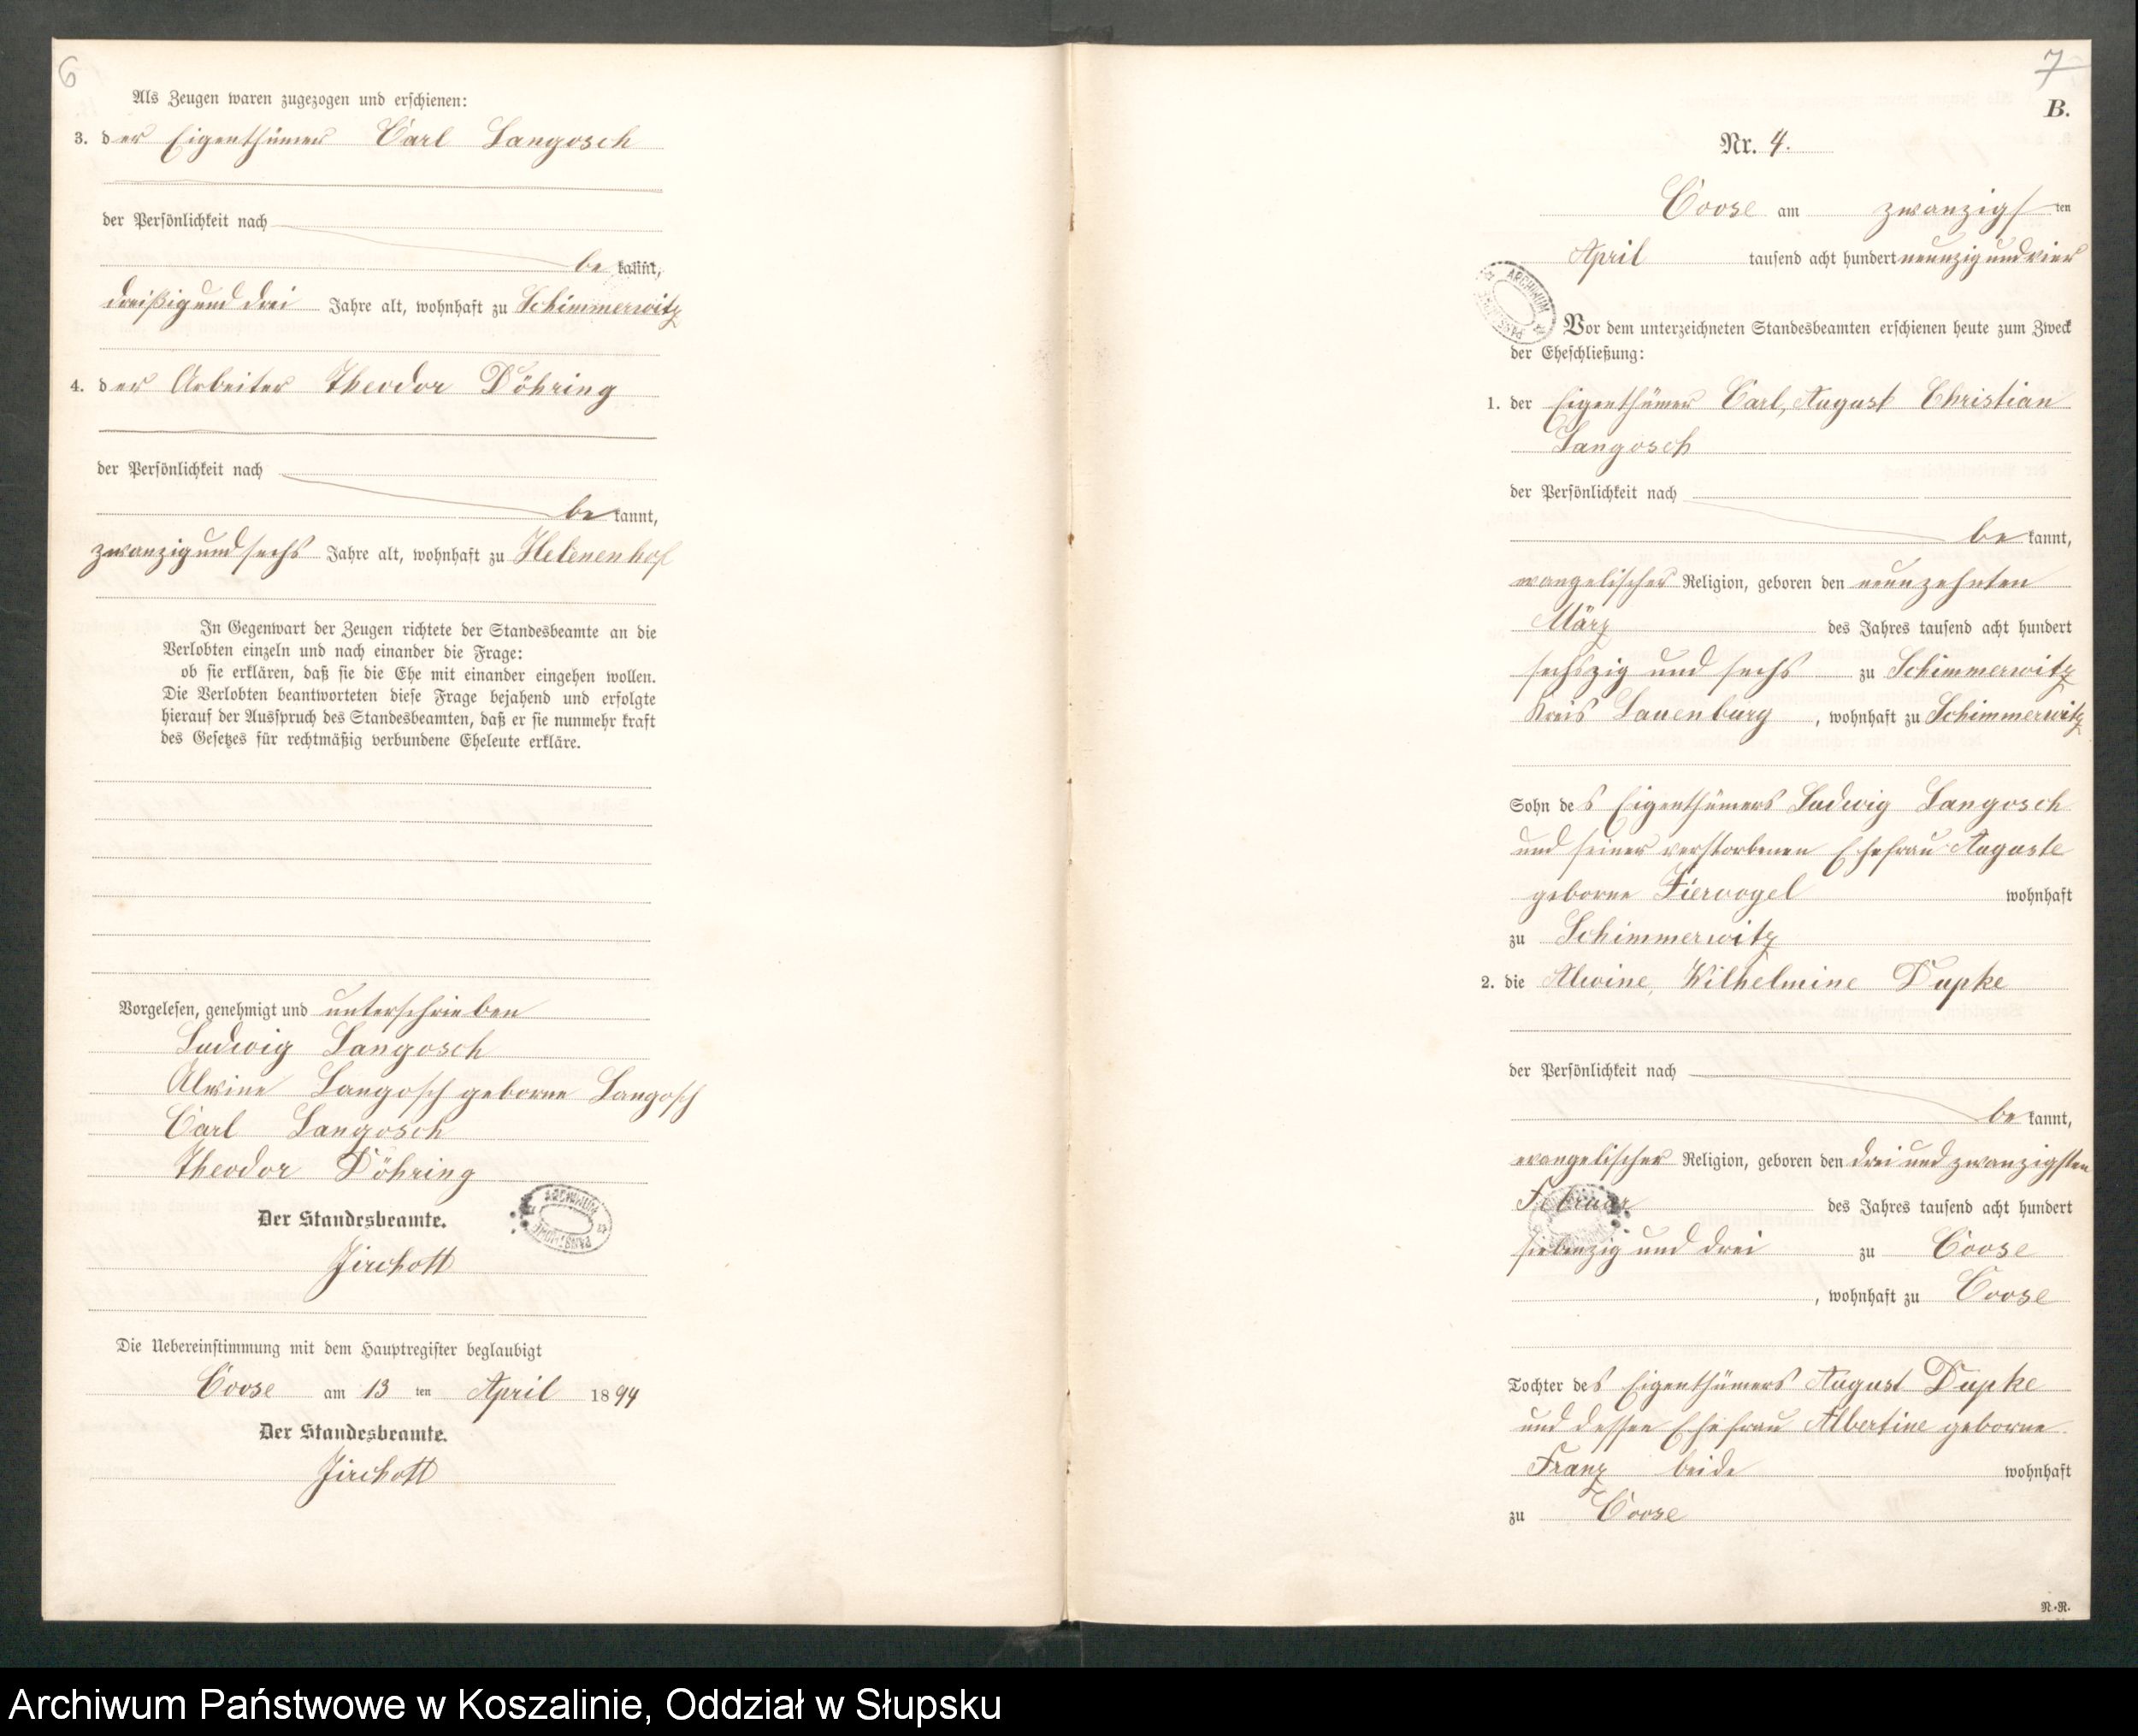 6
Als Zeugen waren zugezogen und erschienen:
3. der Eigenthümer Carl Langosch
der Persönlichkeit nach
bekannt,
dreißig und drei Jahre alt, wohnhaft zu Schimmerwitz
4. der Arbeiter Theodor Döhring
der Persönlichkeit nach
bekannt,
zwanzig und sechs Jahre alt, wohnhaft zu Helenenhof
In Gegenwart der Zeugen richtete der Standesbeamte an die
Verlobten einzeln und nach einander die Frage:
ob sie erklären, daß sie die Ehe mit einander eingehen wollen.
Die Verlobten beantworteten diese Frage bejahend und erfolgte
hierauf der Ausspruch des Standesbeamten, daß er sie nunmehr kraft
des Gesetzes für rechtmäßig verbundene Eheleute erkläre.
Vorgelesen, genehmigt und unterschrieben
Ludwig Langosch
Alwine Langosch geborne Langosch
Carl Langosch
Theodor Döhring
Der Standesbeamte.
Jirchott
Die Uebereinstimmung mit dem Hauptregister beglaubigt
Coose am 13 ten April 1894
Der Standesbeamte.
Jirchott
7
B.
Nr. 4.
Coose am zwanzigsten
April tausend acht hundert neunzig und vier
Vor dem unterzeichneten Standesbeamten erschienen heute zum Zweck
der Eheschließung:
1. der Eigenthümer Carl, August Christian
Langosch
der Persönlichkeit nach
bekannt,
evangelischer Religion, geboren den neunzehnten
März des Jahres tausend acht hundert
sechszig und sechs zu Schimmerwitz
Kreis Lauenburg, wohnhaft zu Schimmerwitz
Sohn des Eigenthümers Ludwig Langosch
und seiner verstorbenen Ehefrau Auguste
geborne Fiervogel wohnhaft
zu Schimmerwitz
2. die Alwine, Wilhelmine Dupke
der Persönlichkeit nach
bekannt,
evangelischer Religion, geboren den drei und zwanzigsten
Februar des Jahres tausend acht hundert
siebenzig und drei zu Coose
, wohnhaft zu Coose
Tochter des Eigenthümers August Dupke
und dessen Ehefrau Albertine geborne
Franz beide wohnhaft
zu Coose
R.-R.
Archiwum Państwowe w Koszalinie, Oddział w Słupsku